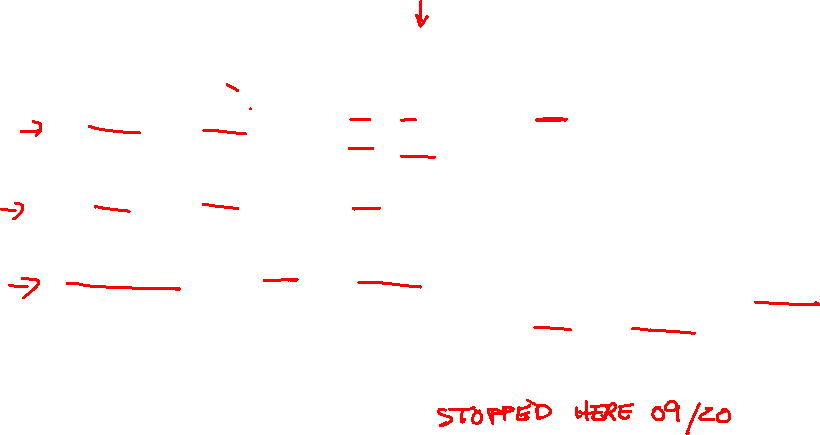 STOPPED HERE 09/20